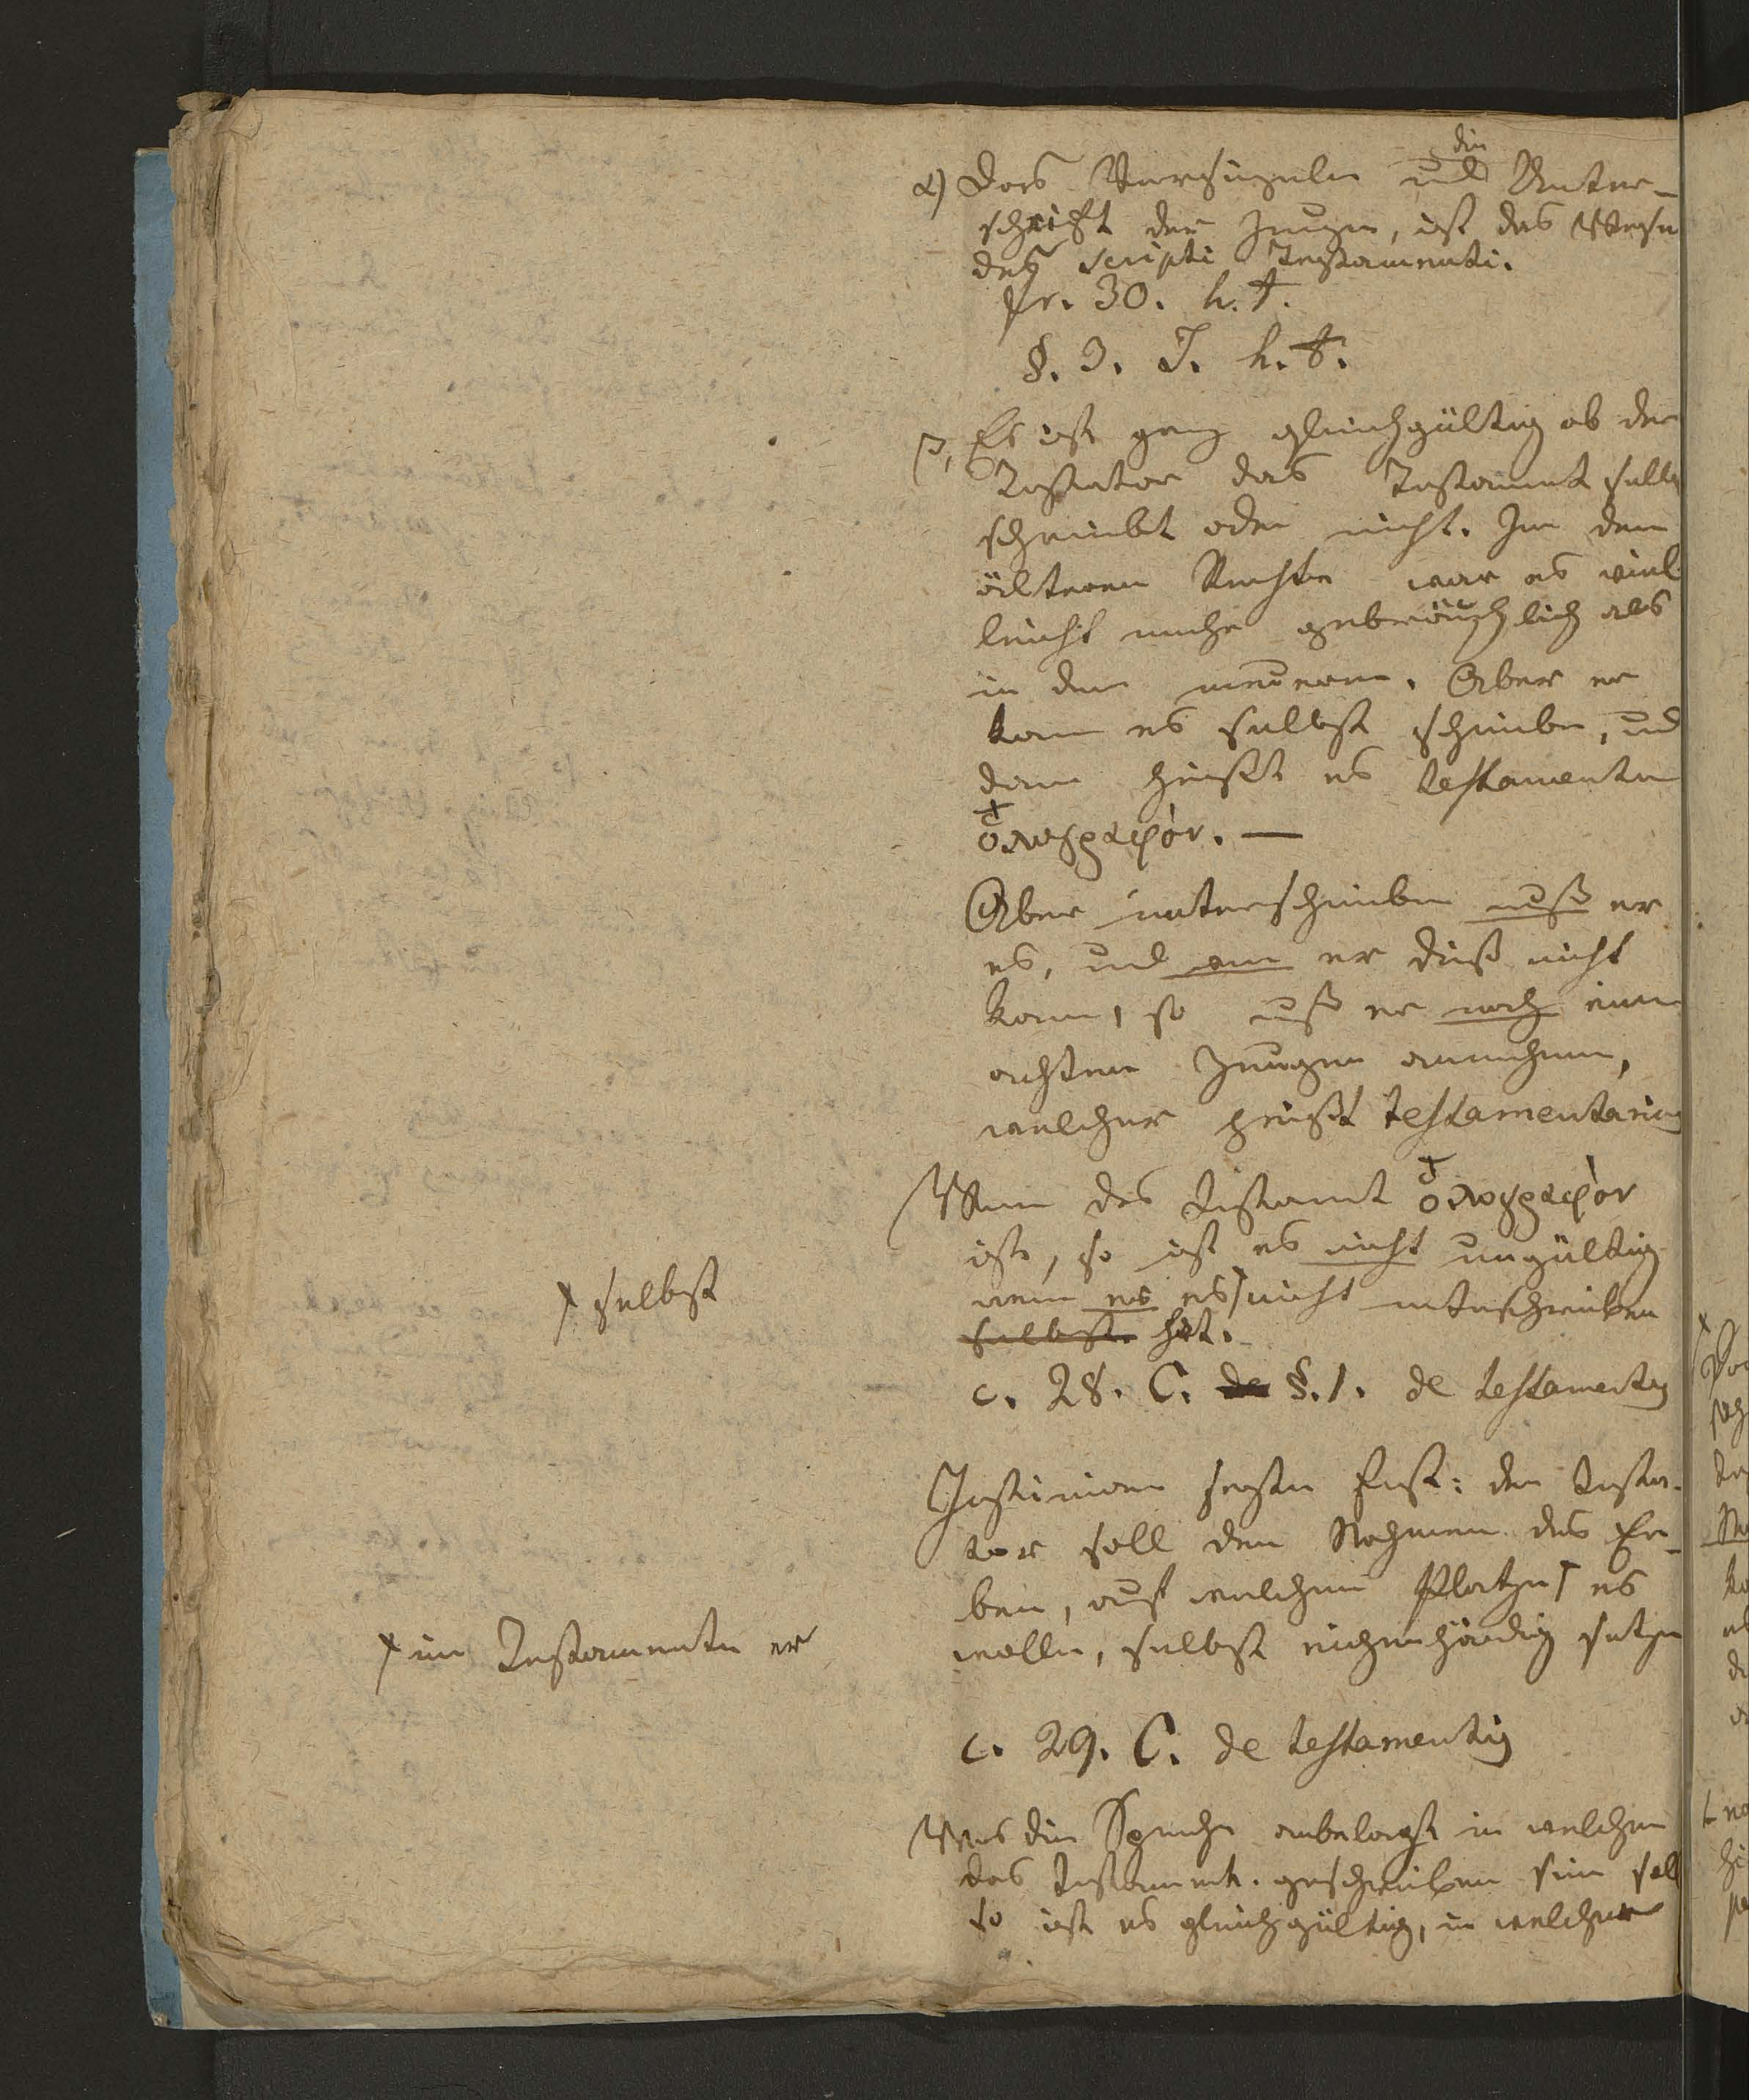 die
α) Das Versiegeln und Unter-
schrift der Zeugen, ist das Wesen
des scripti Testamenti.
fr. 30. h. t.
§. 3. J. h. t.
β, Es ist ganz gleichgültig ob der
Testator das Testament selbst
schreibt oder nicht. In dem
älteren Rechte war es viel
leicht mehr gebräuchlich als
in dem neuern. Aber er
kann es selbst schreiben, und
dann heißt es testamentum
ὁλογραφόν. —
Aber unterschreiben muß er
es, und wenn er dieß nicht
kann, so muß er noch einen
achten Zeugen annehmen,
welcher heißt testamentarius
Wenn das Testamt ὁλογραφόν
ist, so ist es nicht ungültig
wenn er es nicht unterschrieben
selbst hat.
⨯ selbst
c. 28. C. de §. 1. de testamentis
Justinian setzte fest: der Testa-
tor soll den Nahmen des Er-
ben, auf welchem Platze es
wolle, selbst eigenhändig setzen
⨯ im Testamente er
c. 29. C. de testamentis
Was die Sprache anbelangt in welcher
das Testament. geschrieben sein soll
so ist es gleichgültig, in welcher